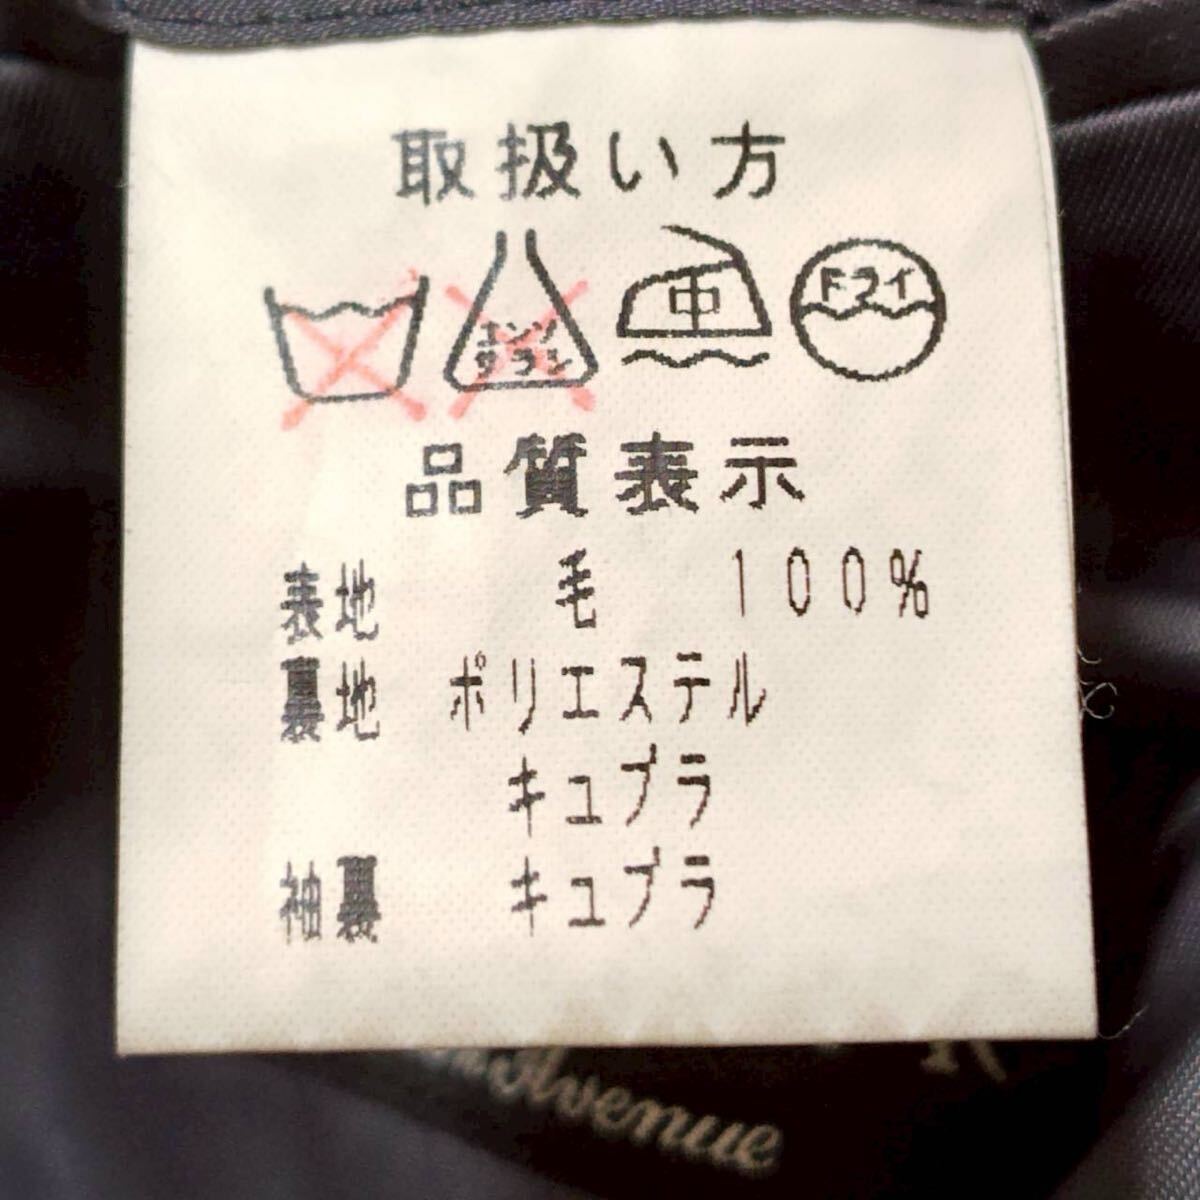 取扱い方
エンソ サラシ 中 ドライ
品質表示
表地 毛 100%
裏地 ポリエステル
キュプラ
袖裏 キュプラ
Avenue